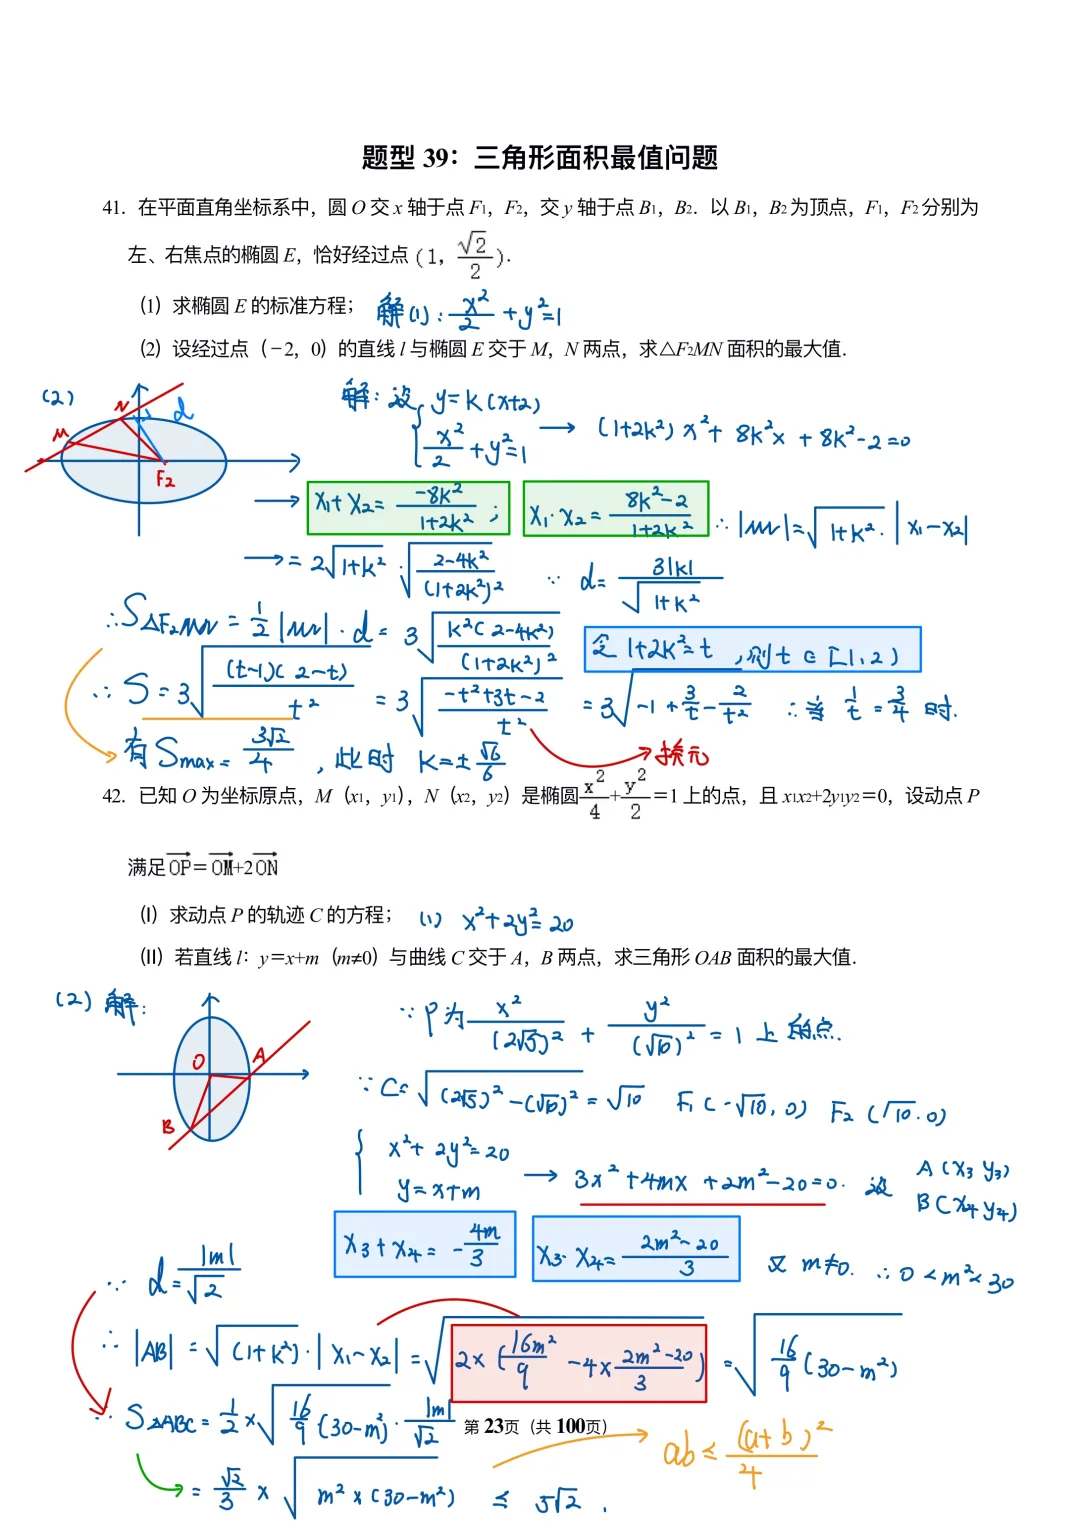 题型 39：三角形面积最值问题
41. 在平面直角坐标系中，圆 O 交 x 轴于点 F₁，F₂，交 y 轴于点 B₁，B₂．以 B₁，B₂ 为顶点，F₁，F₂ 分别为
左、右焦点的椭圆 E，恰好经过点 (1, √2/2)．
（1）求椭圆 E 的标准方程； 解(1): x²/2 + y²=1
（2）设经过点（－2，0）的直线 l 与椭圆 E 交于 M，N 两点，求△F₂MN 面积的最大值．
(2) N d M F₂
解: 设 { y=k(x+2)
x²/2 + y²=1 → (1+2k²)x² + 8k²x + 8k²-2=0
→ x₁+x₂= -8k²/(1+2k²) ; x₁·x₂= (8k²-2)/(1+2k²) ∴ |MN|=√(1+k²)·|x₁-x₂|
→ = 2√(1+k²)·√((2-4k²)/(1+2k²)²) ∵ d= 3|k|/√(1+k²)
∴ S△F₂MN = 1/2|MN|·d = 3√(k²(2-4k²)/(1+2k²)²) 令 1+2k²=t ,则 t∈[1,2)
∴ S=3√((t-1)(2-t)/t²) = 3√((-t²+3t-2)/t²) = 3√(-1+3/t-2/t²) ∴ 当 1/t = 3/4 时.
有 Smax= 3√2/4 , 此时 k=±√6/6 换元
42. 已知 O 为坐标原点，M（x₁，y₁），N（x₂，y₂）是椭圆 x²/4 + y²/2 =1 上的点，且 x₁x₂+2y₁y₂=0，设动点 P
满足 OP→ = OM→+2ON→
（Ⅰ）求动点 P 的轨迹 C 的方程； (1) x²+2y²=20
（Ⅱ）若直线 l：y=x+m（m≠0）与曲线 C 交于 A，B 两点，求三角形 OAB 面积的最大值．
(2) 解: O A B
∵ P为 x²/(2√5)² + y²/(√10)² = 1 上的点.
∵ C=√((2√5)²-(√10)²) = √10 F₁(-√10, 0) F₂(√10.0)
{ x²+2y²=20
y=x+m → 3x²+4mx+2m²-20=0. 设 A(x₃ y₃)
B(x₄ y₄)
x₃+x₄= -4m/3 x₃·x₄= (2m²-20)/3 又 m≠0. ∴ 0<m²<30
∵ d= |m|/√2
∴ |AB| = √(1+k²)·|x₁-x₂| = √(2×(16m²/9 -4×(2m²-20)/3)) = √(16/9(30-m²))
∵ S△ABC = 1/2×√(16/9(30-m²))·|m|/√2
第 23页（共 100页）
= √2/3 × √(m²×(30-m²)) ≤ 5√2 .
ab ≤ (a+b)²/4